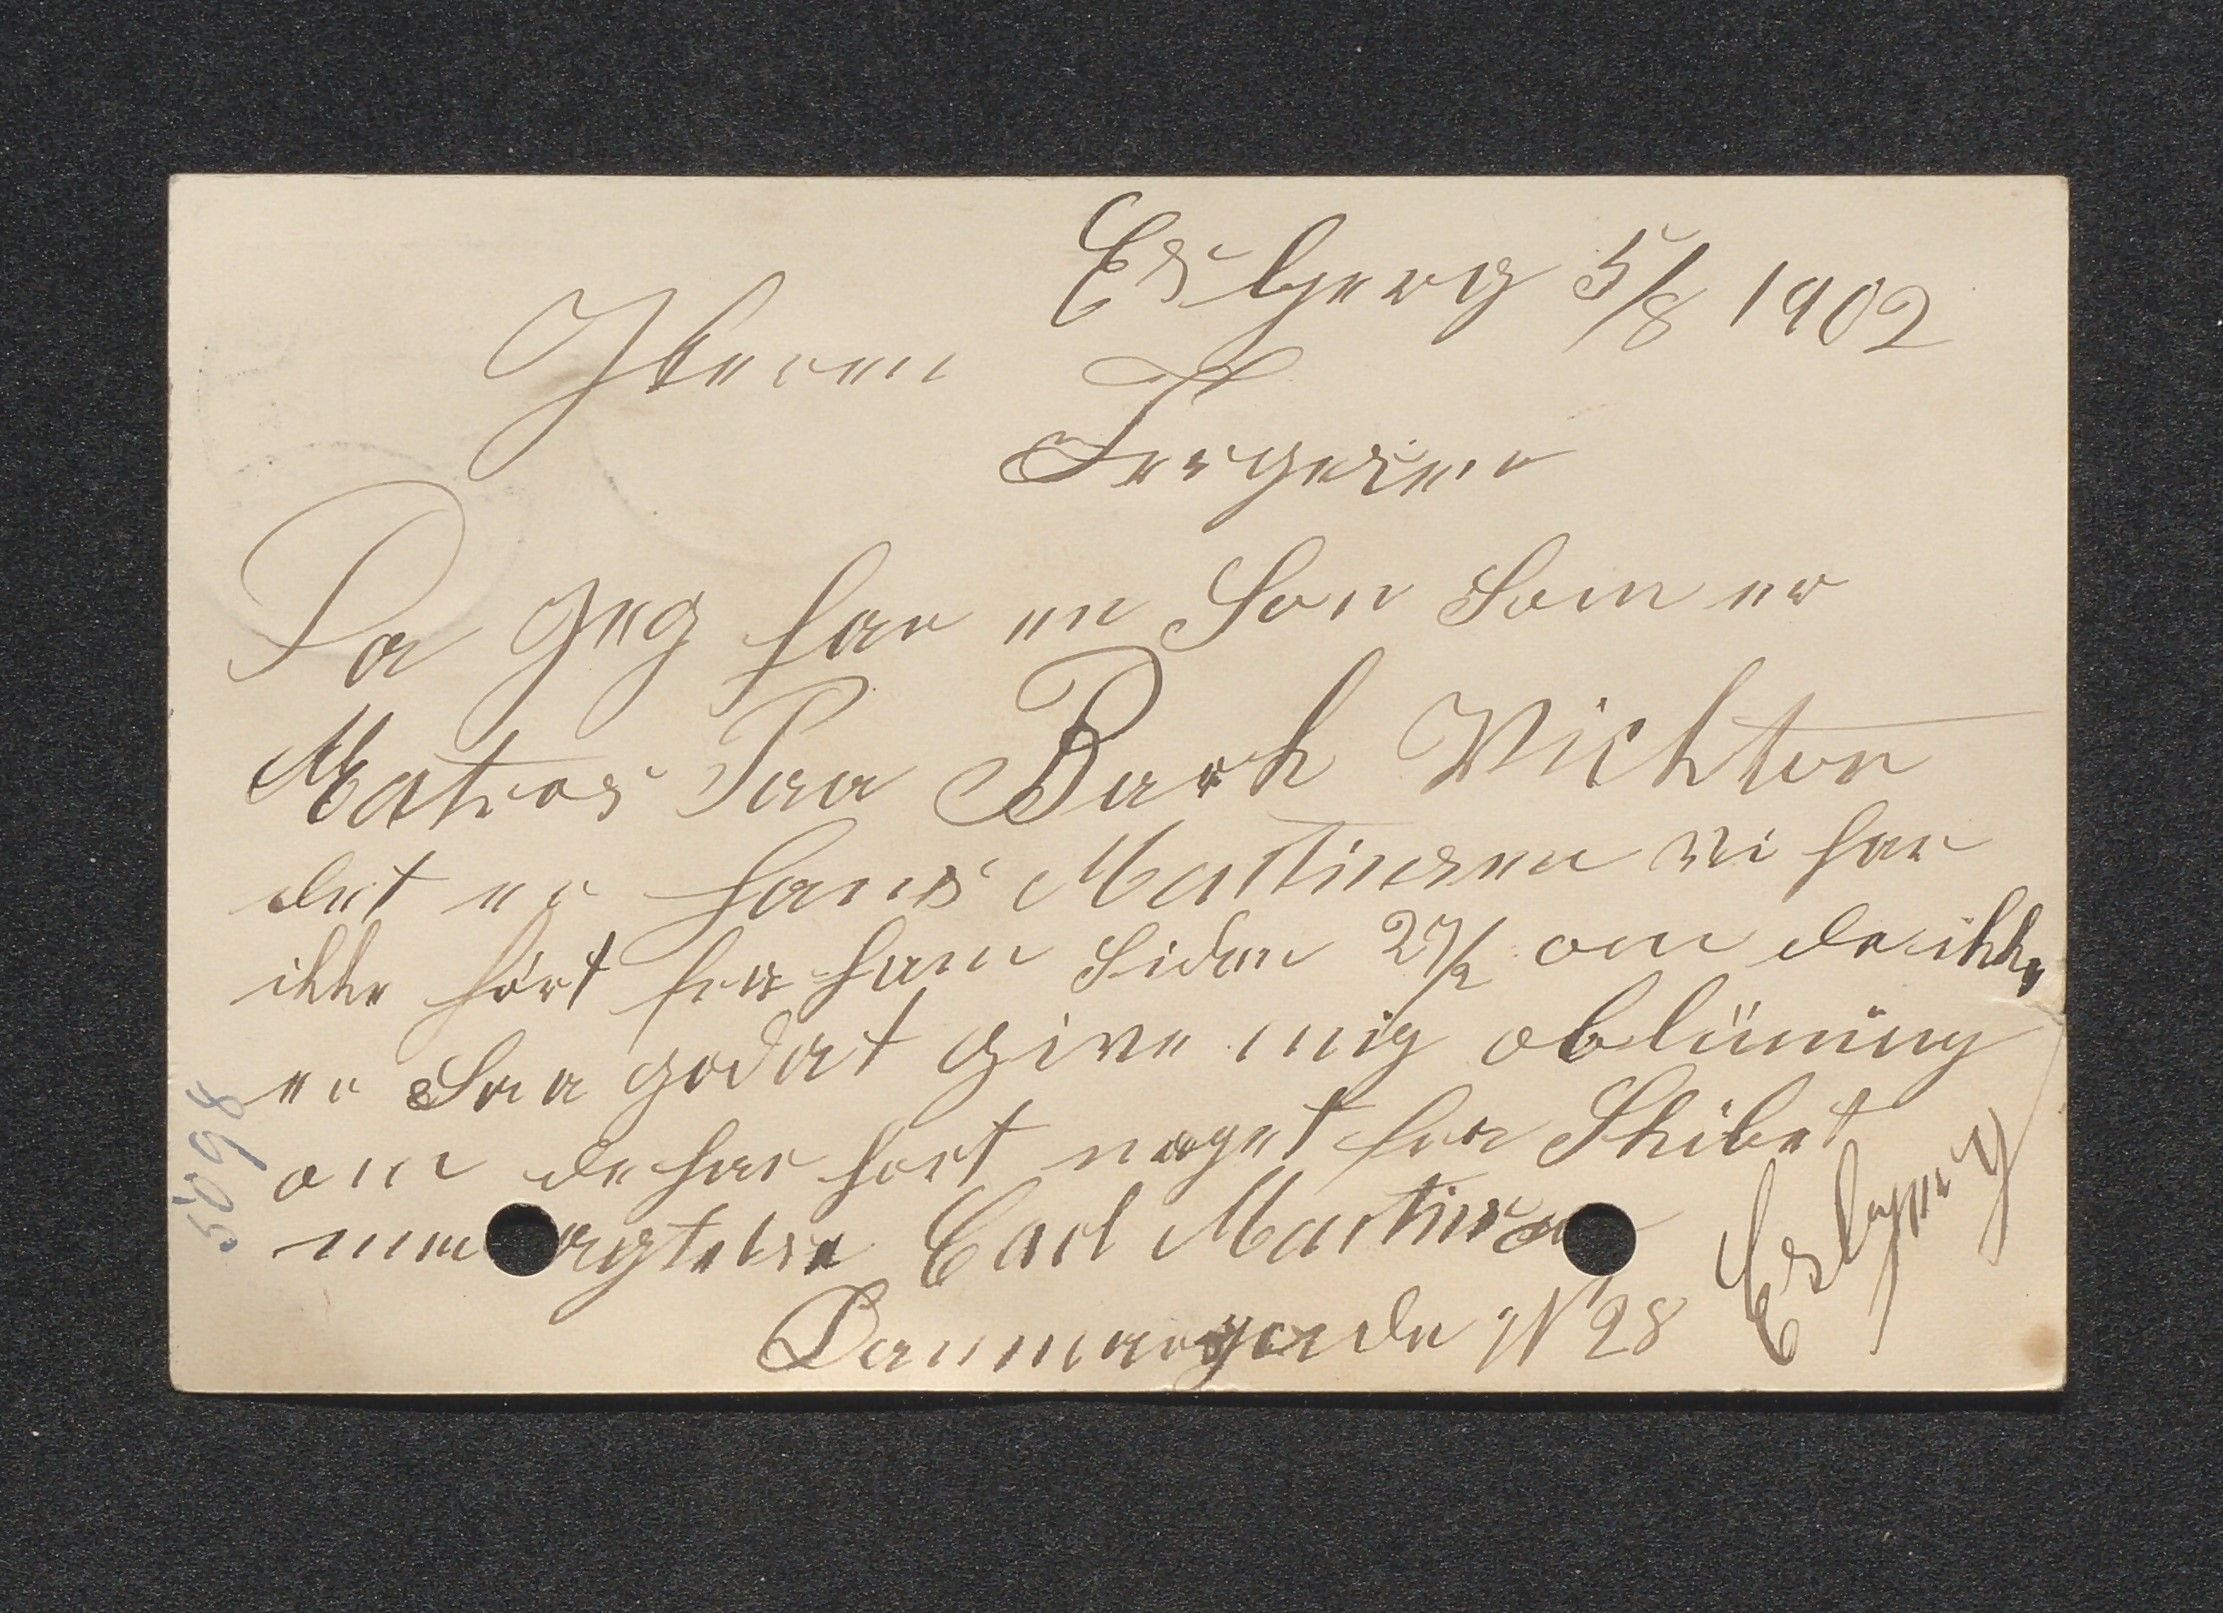 Esbjerg 5/8 1902
Herren
Jørgesen
Da Jeg har en Søn Som er
Matros Paa Bark Wichtor
det er Hans Martinsen vi har
ikke hørt fra ham Siden 27/2 om de ikke
er Saa god at give mig oblüsning
om de har hørt noget fra Skibet
med agtelse Carl Martinsen
Danmarsgade N 28 Esbjerg
5098